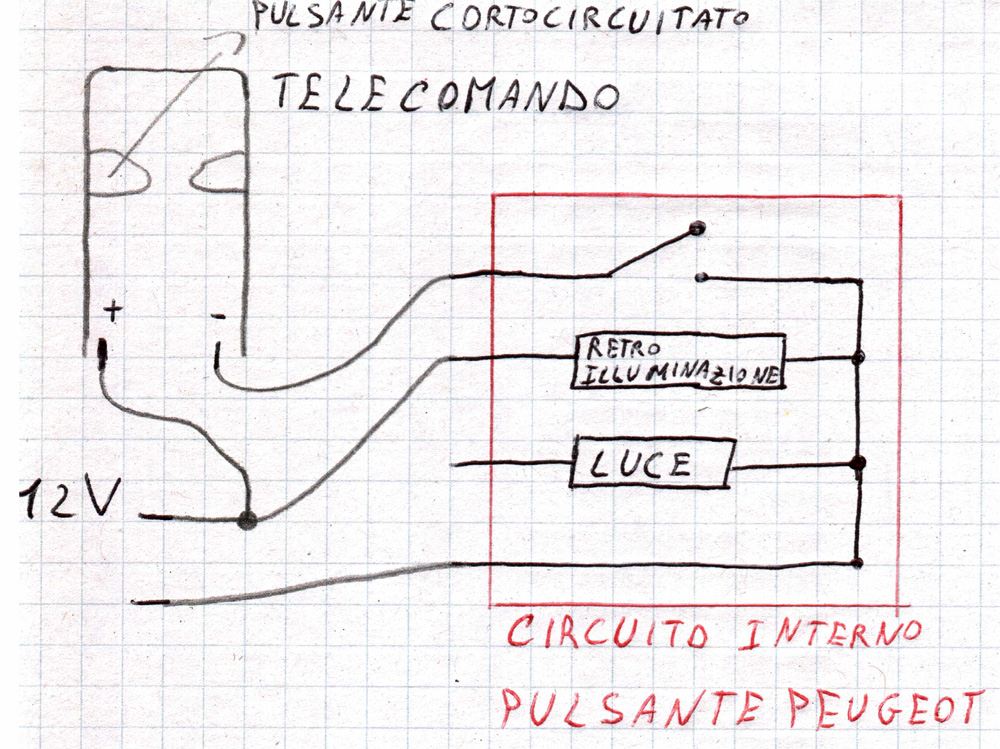 PULSANTE CORTOCIRCUITATO
TELECOMANDO
+ -
RETRO
ILLUMINAZIONE
LUCE
12V
CIRCUITO INTERNO
PULSANTE PEUGEOT